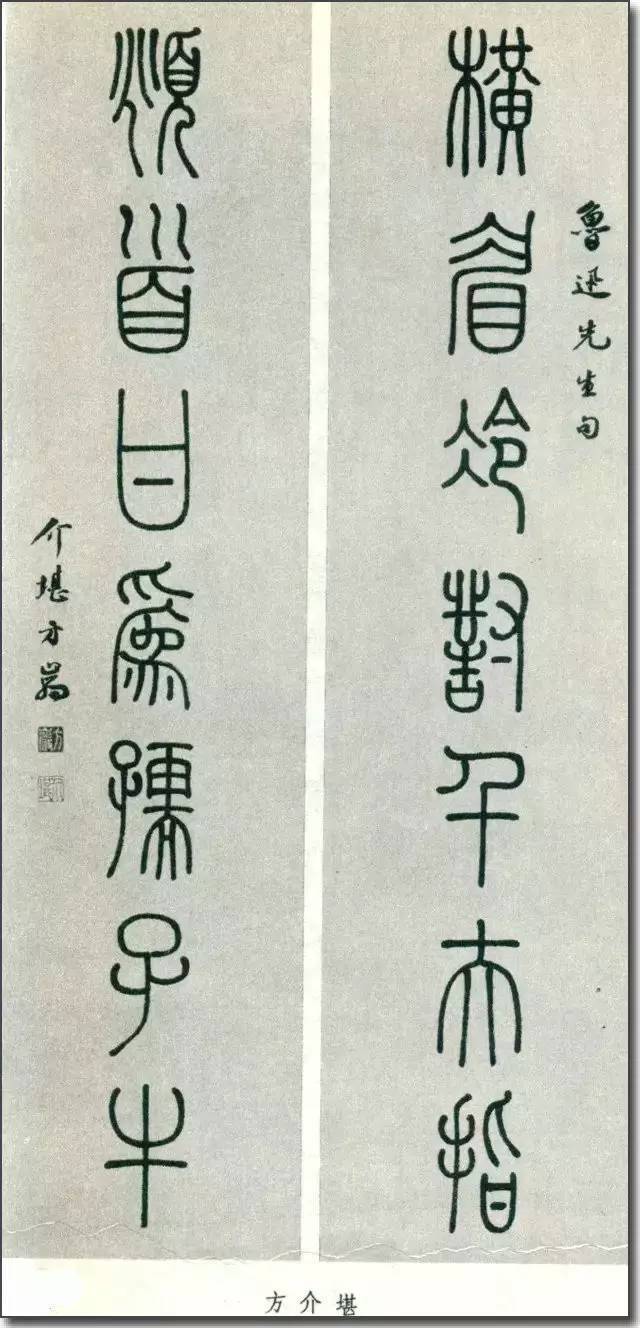 魯迅先生句
橫眉冷對千夫指
頫首甘爲孺子牛
介堪方
方介堪